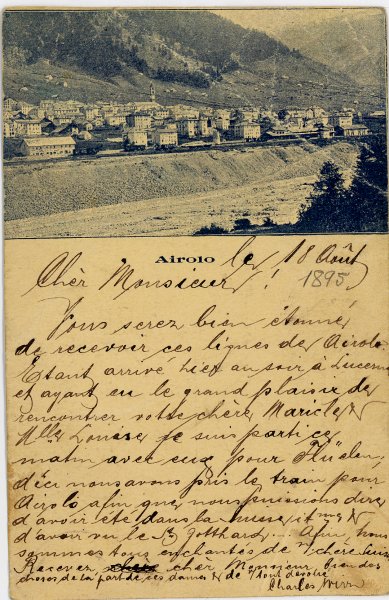 Airolo le 18 Août
1895
Chèr Monsieur!
Vous serez bien étonné
de recevoir ces lignes de Airolo.
Etant arrivé hier au soir à Lucerne
et ayant eu le grand plaisir de
rencontrer votre chère
Mlle Louise je suis parti ce
matin avec eux pour Flüelen,
d'ici nous avons pris le train pour
Airolo afin que nous puissions dire
d'avoir été dans la
d'avoir vu le St Gotthard... Enfin nous
sommes tous enchantés de
Recevez cher Monsieur bien des
choses de la part de ses dames & de Votre dévoué
Charles